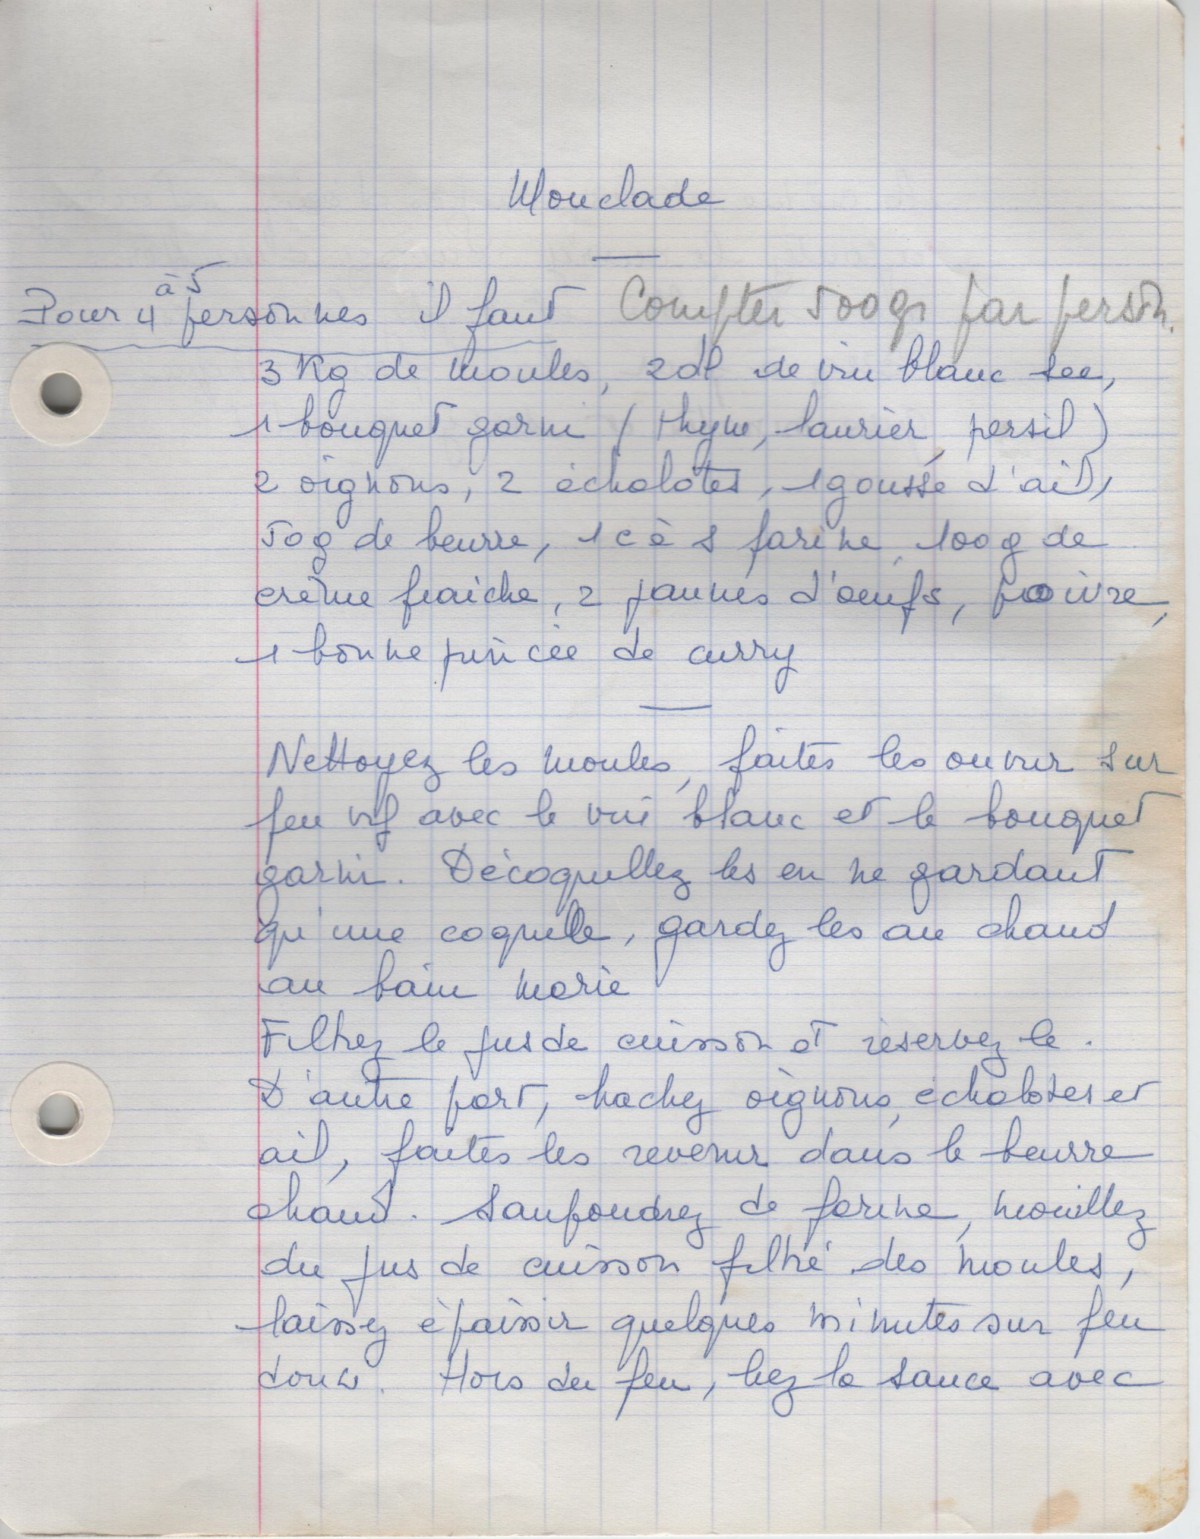 Mouclade
Pour 4 à 5 personnes il faut Compter 500gr par person.
3 Kg de moules, 2dl de vin blanc sec,
1 bouquet garni (thym, laurier, persil)
2 oignons, 2 échalotes, 1 gousse d'ail,
50g de beurre, 1 c à s farine, 100g de
crème fraiche, 2 jaunes d'oeufs, poivre,
1 bonne pincée de curry
Nettoyez les moules, faites les ouvrir sur
feu vif avec le vin blanc et le bouquet
garni. Décoquillez les en ne gardant
qu'une coquille, gardez les au chaud
au bain marie
Filtrez le jus de cuisson et réservez le.
D'autre part, hachez oignons, échalotes et
ail, faites les revenir dans le beurre
chaud. Saupoudrez de farine, mouillez
du jus de cuisson filtré des moules,
laissez épaissir quelques minutes sur feu
doux. Hors du feu, liez la sauce avec